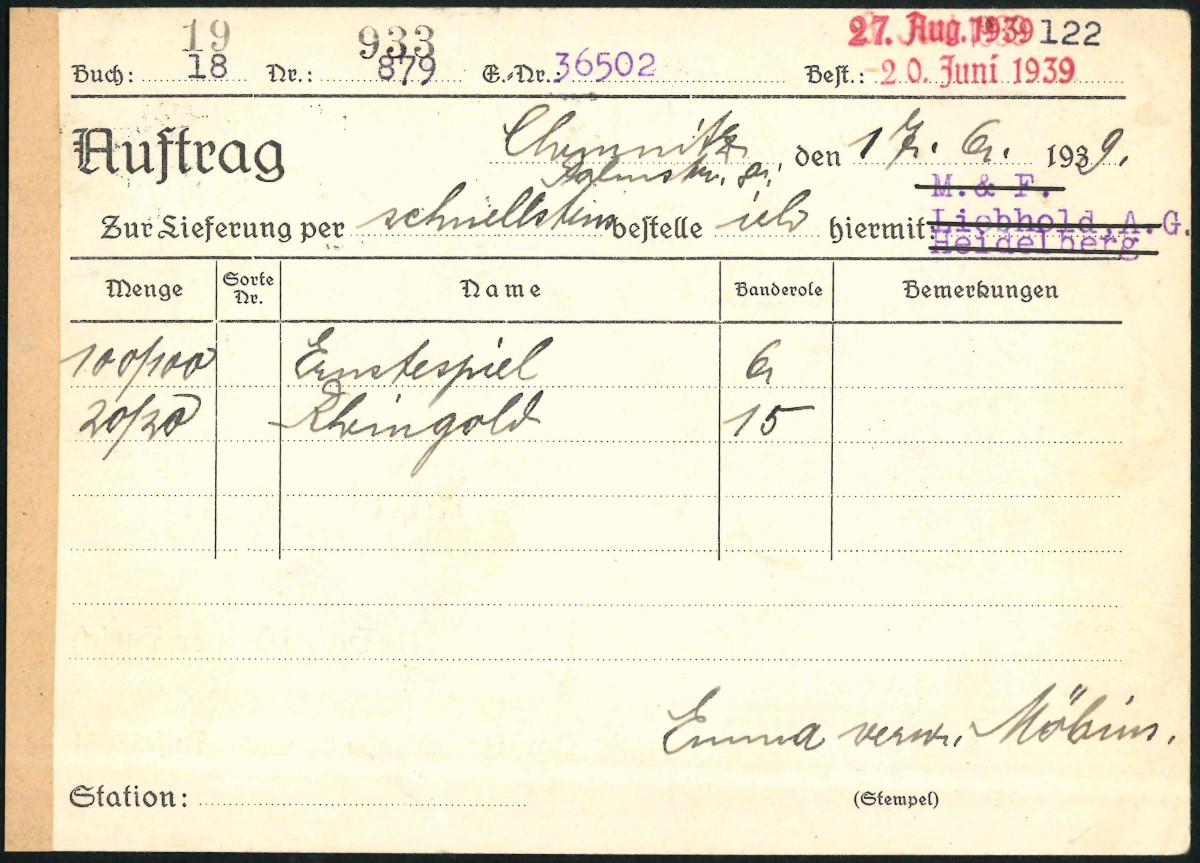 19 933 27. Aug. 1939 122
Buch: 18 Nr.: 879 E.-Nr.: 36502 Best.: -20. Juni 1939
Auftrag Chemnitz, den 17. 6. 1939.
M. & F.
Zur Lieferung per schnellstens bestelle ich hiermit Liebhold, A.G.
Heidelberg
Menge Sorte Nr. Name Banderole Bemerkungen
100/100 Ernstespiel 6
20/20 Rheingold 15
Emma verw. Möbius.
Station: (Stempel)